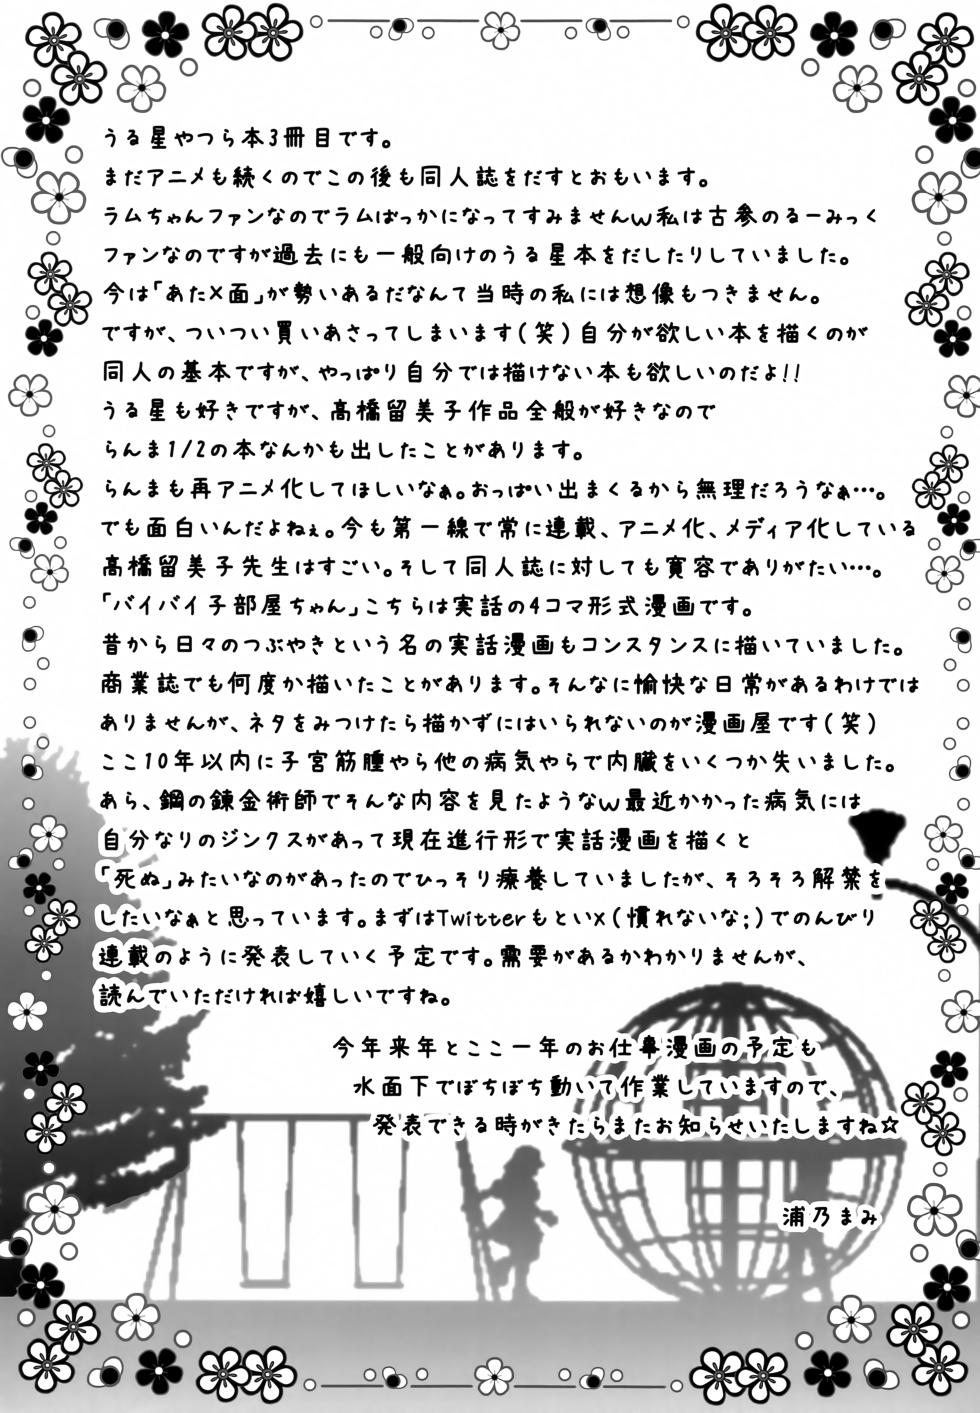 うる星やつら本3冊目です。
まだアニメも続くのでこの後も同人誌をだすとおもいます。
ラムちゃんファンなのでラムばっかになってすみませんw私は古参のるーみっく
ファンなのですが過去にも一般向けのうる星本をだしたりしていました。
今は「あた×面」が勢いあるだなんて当時の私には想像もつきません。
ですが、ついつい買いあさってしまいます(笑)自分が欲しい本を描くのが
同人の基本ですが、やっぱり自分では描けない本も欲しいのだよ!!
うる星も好きですが、高橋留美子作品全般が好きなので
らんま1/2の本なんかも出したことがあります。
らんまも再アニメ化してほしいなぁ。おっぱい出まくるから無理だろうなぁ…。
でも面白いんだよねぇ。今も第一線で常に連載、アニメ化、メディア化している
高橋留美子先生はすごい。そして同人誌に対しても寛容でありがたい…。
「バイバイ子部屋ちゃん」こちらは実話の4コマ形式漫画です。
昔から日々のつぶやきという名の実話漫画もコンスタンスに描いていました。
商業誌でも何度か描いたことがあります。そんなに愉快な日常があるわけでは
ありませんが、ネタをみつけたら描かずにはいられないのが漫画屋です(笑)
ここ10年以内に子宮筋腫やら他の病気やらで内臓をいくつか失いました。
あら、鋼の錬金術師でそんな内容を見たようなw最近かかった病気には
自分なりのジンクスがあって現在進行形で実話漫画を描くと
「死ぬ」みたいなのがあったのでひっそり療養していましたが、そろそろ解禁を
したいなぁと思っています。まずはTwitterもといx(慣れないな;)でのんびり
連載のように発表していく予定です。需要があるかわかりませんが、
読んでいただければ嬉しいですね。
今年来年とここ一年のお仕事漫画の予定も
水面下でぼちぼち動いて作業していますので、
発表できる時がきたらまたお知らせいたしますね☆
浦乃まみ